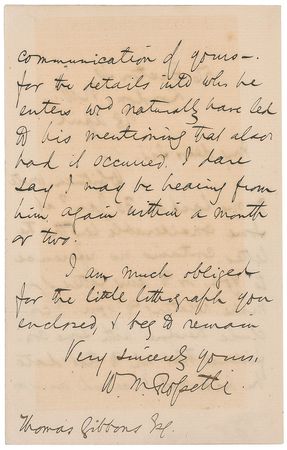 communication of yours—
for the details into wh. he
enters wd. naturally have led
to his mentioning that also
had it occurred. I dare
say I may be hearing from
him again within a month
or two.
I am much obliged
for the little lithograph you
enclosed, & beg to remain
Very sincerely yours,
W. M. Rossetti
Thomas Gibbons Esq.